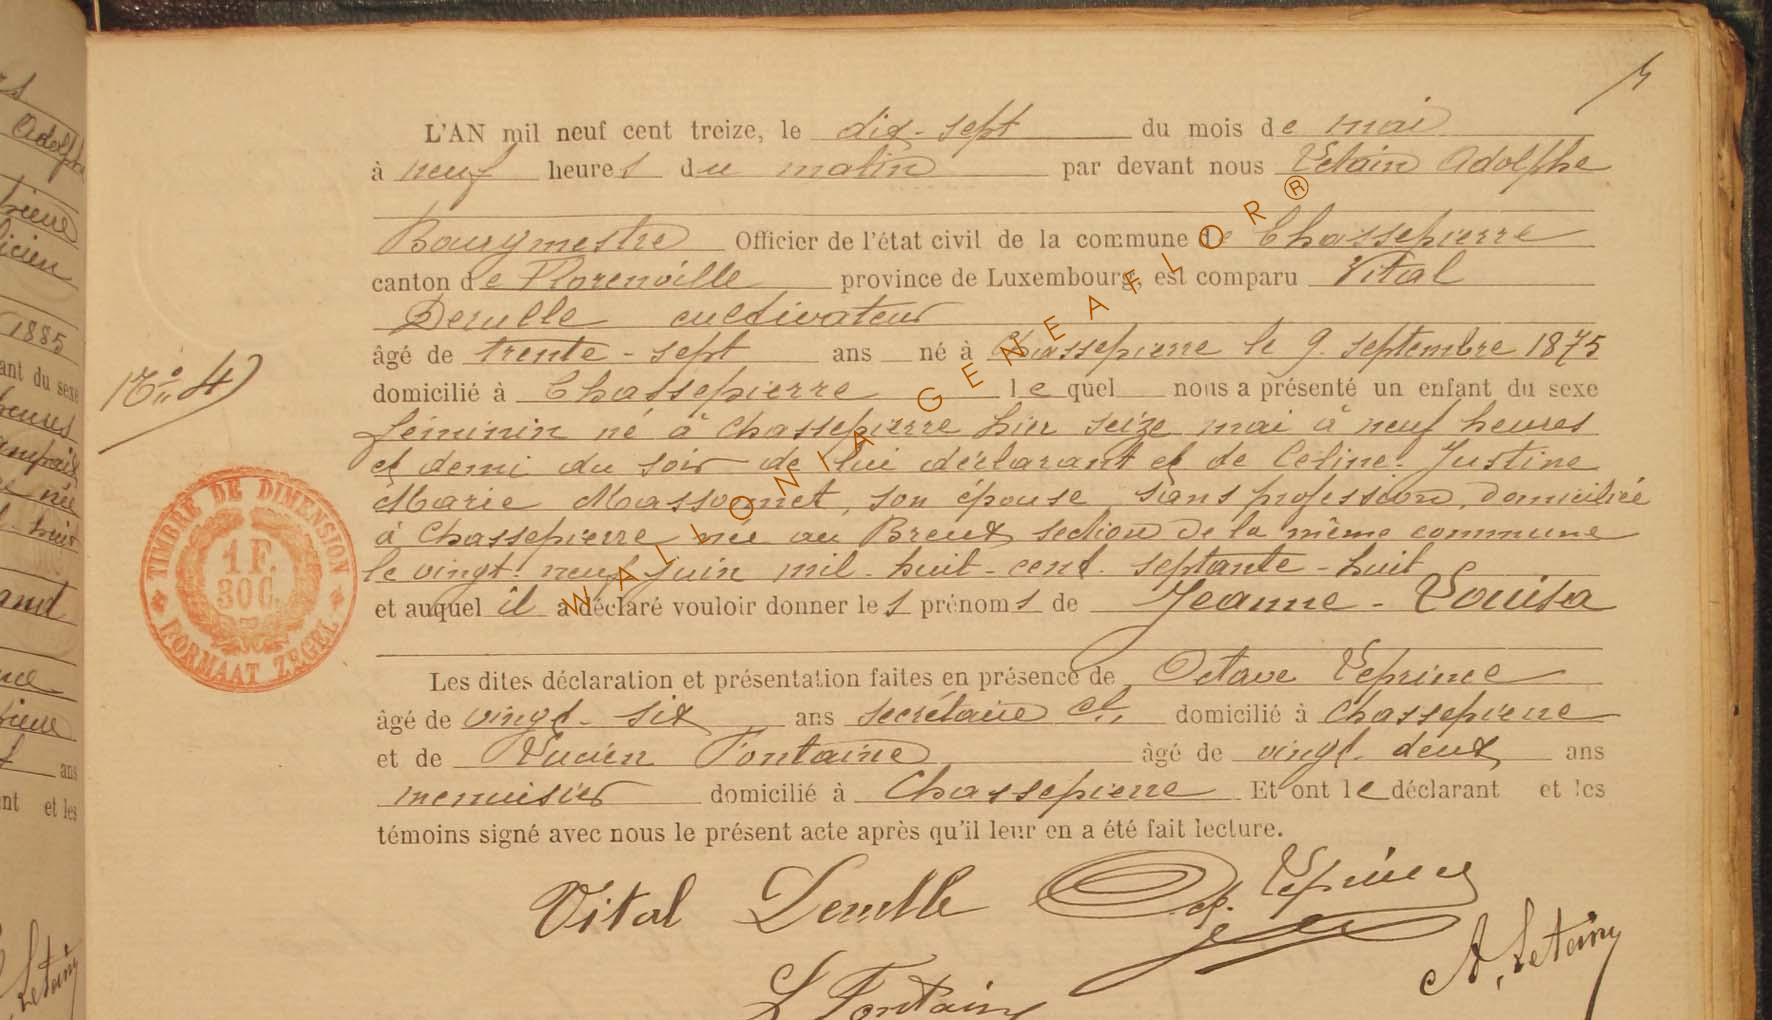 L'AN mil neuf cent treize, le dix-sept du mois de mai
à neuf heures du matin par devant nous Letain Adolphe
Bourgmestre Officier de l'état civil de la commune de Chassepierre
canton de Florenville province de Luxembourg, est comparu Vital
Derulle cultivateur
âgé de trente-sept ans né à Chassepierre le 9 septembre 1875
domicilié à Chassepierre lequel nous a présenté un enfant du sexe
féminin né à Chassepierre hier seize mai à neuf heures
N° 4
et demi du soir de lui déclarant et de Celine-Justine
Marie Massonnet, son épouse, sans profession, domiciliée
à Chassepierre née au Breux section de la même commune
le vingt-neuf juin mil-huit-cent-septante-huit
et auquel il a déclaré vouloir donner les prénoms de Jeanne-Louisa
TIMBRE DE DIMENSION
1 F.
30 C.
FORMAAT ZEGEL
Les dites déclaration et présentation faites en présence de Octave Leprince
âgé de vingt-six ans secrétaire cl domicilié à Chassepierre
et de Lucien Fontaine âgé de vingt-deux ans
menuisier domicilié à Chassepierre Et ont le déclarant et les
témoins signé avec nous le présent acte après qu'il leur en a été fait lecture.
Vital Derulle Oct. Leprince
A. Letain
L Fontaine
WALLONIA GENEAFLOR®
Adolphe
1885
ant du sexe
heures
ans
et les
Letain